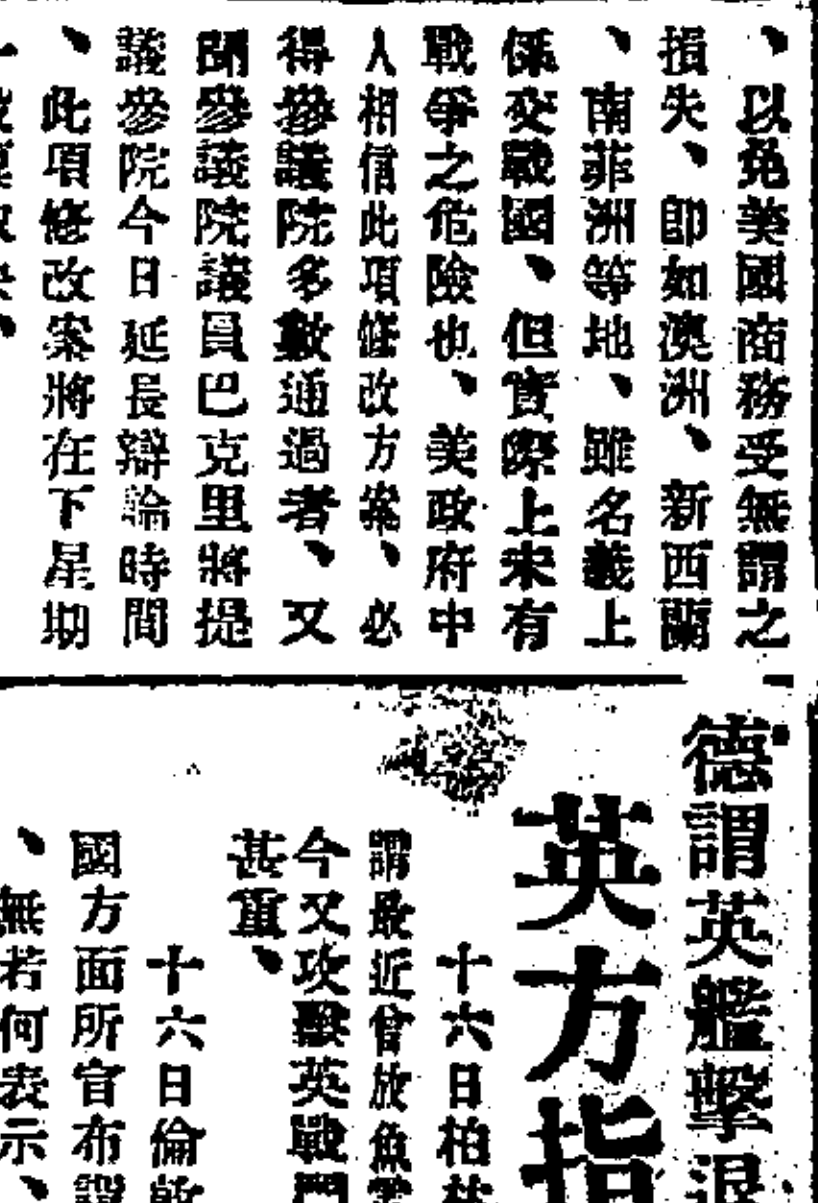 、以免美國商務受無謂之
損失、即如澳洲、新西蘭
、南菲洲等地、雖名義上
係交戰國、但實際上未有
戰爭之危險也、美政府中
人相信此項修改方案、必
得參議院多數通過者、又
聞參議院議員巴克里將提
議參院今日延長辯論時間
、此項修改案將在下星期
德謂英艦擊退
英方指
十六日柏林
謂最近曾放魚雷
今又攻擊英戰鬥
甚重、
十六日倫敦
國方面所宣布謂
、無若何表示、